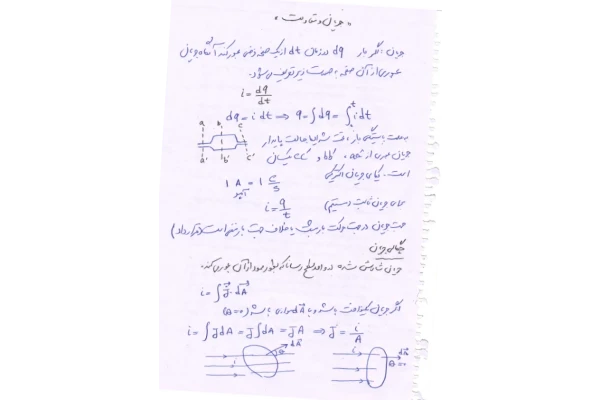 « جریان و مقاومت »
جریان: اگر بار dq در زمان dt از یک صفحه فرضی عبور کند آنگاه جریان
عبوری از آن صفحه بصورت زیر تعریف می‌شود.
i = dq/dt
dq = i dt ⇒ q = ∫dq = ∫₀ᵗ i dt
a b c
a' b' c'
بعلت پایستگی بار تحت شرایط حالت پایدار
جریان عبوری از aa'، bb' و cc' یکسان
است. یکای جریان الکتریکی
1 A = 1 C/s
آمپر
i = q/t
جهت جریان در جهت حرکت بار مثبت یا خلاف جهت بار منفی است (قرارداد)
چگالی جریان
جریان شارش شده در واحد سطح رسانا که بطور عمود از آن عبور می‌کند.
i = ∫J⃗ . dA⃗
اگر جریان یکنواخت باشد و با dA⃗ موازی باشد (θ = 0)
i = ∫J dA = J∫dA = JA ⇒ J = i/A
i dA⃗ θ
i dA⃗ θ = 0